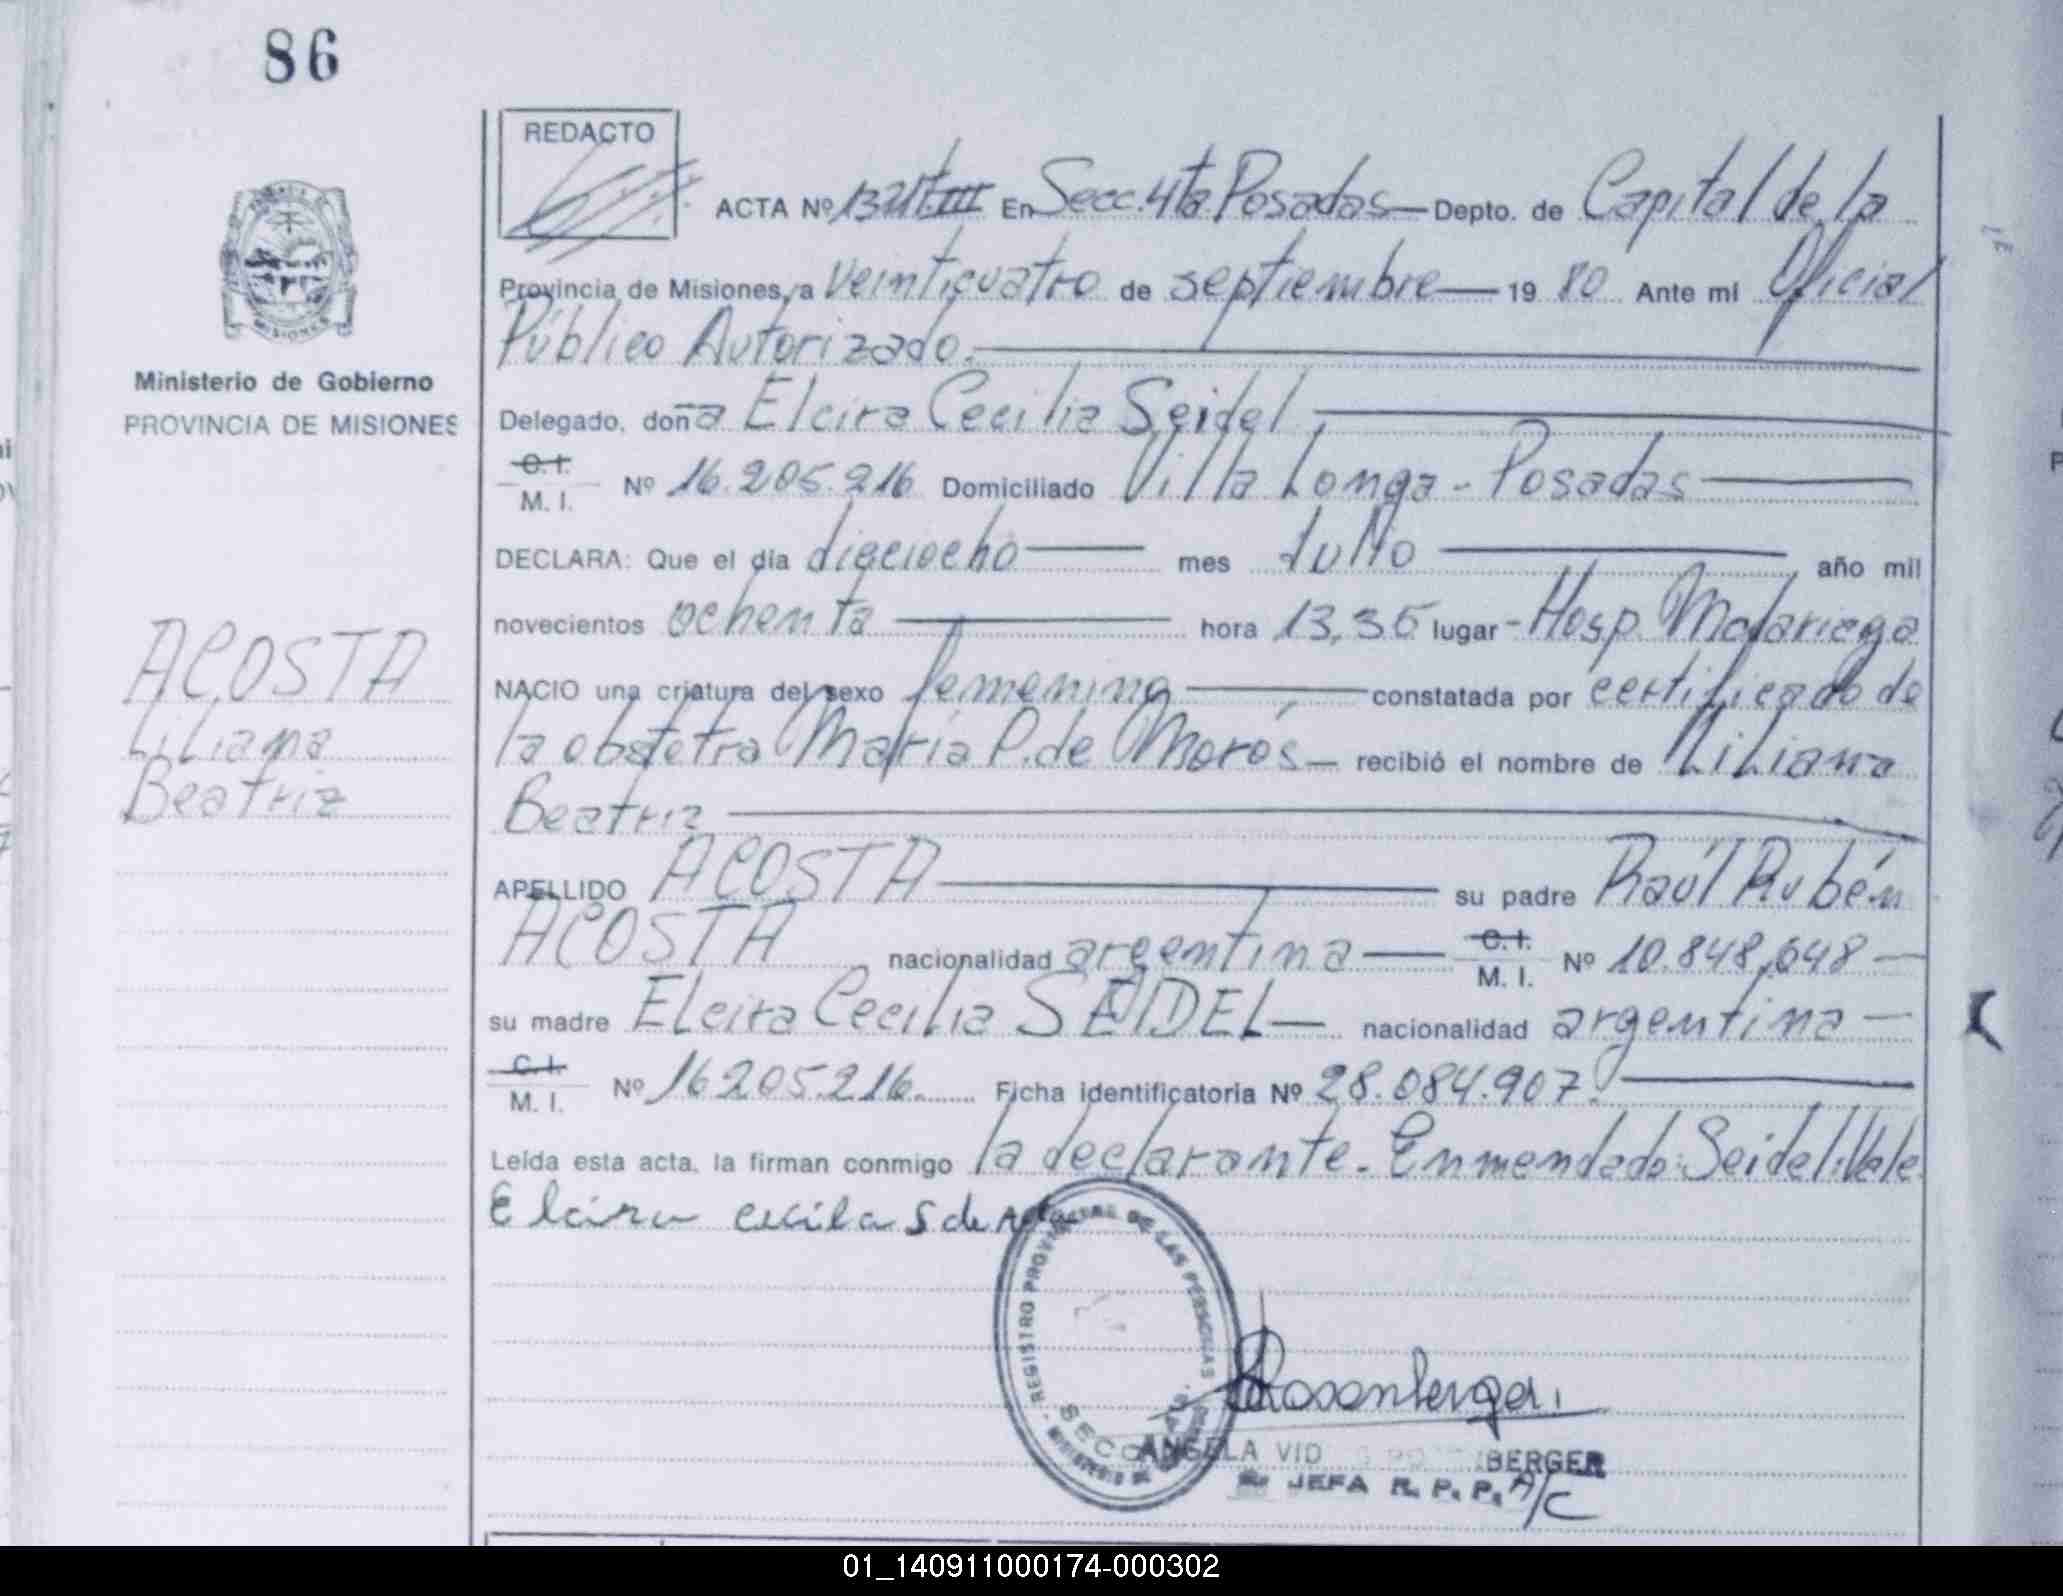 86
REDACTO
ACTA Nº 1321 tIII En Secc. 4ta. Posadas Depto. de Capital de la
Provincia de Misiones, a veinticuatro de septiembre 19 80 Ante mi Oficial
Público Autorizado.
MISIONES
Ministerio de Gobierno
PROVINCIA DE MISIONES
Delegado, doña Elcira Cecilia Seidel
C. I.
M. I. Nº 16.205.216 Domiciliado Villa Longa - Posadas
DECLARA: Que el día dieciocho mes Julio año mil
novecientos ochenta hora 13,35 lugar - Hosp. Madariaga
ACOSTA
Liliana
Beatriz
NACIO una criatura del sexo femenino constatada por certificado de
la obstetra María P. de Morós recibió el nombre de Liliana
Beatriz
APELLIDO ACOSTA su padre Raúl Rubén
ACOSTA nacionalidad argentina C. I. M. I. Nº 10.848.648
su madre Elcira Cecilia SEIDEL nacionalidad argentina
C. I.
M. I. Nº 16.205.216. Ficha identificatoria Nº 28.084.907.
Leída esta acta, la firman conmigo la declarante. Enmendado: Seidel: Vale
Elcira cecila S de
REGISTRO PROVINCIAL DE LAS PERSONAS
MINISTERIO DE
SECC
Rosenberger
ANGELA VID BERGER
JEFA R. P. P. A/C
01_140911000174-000302